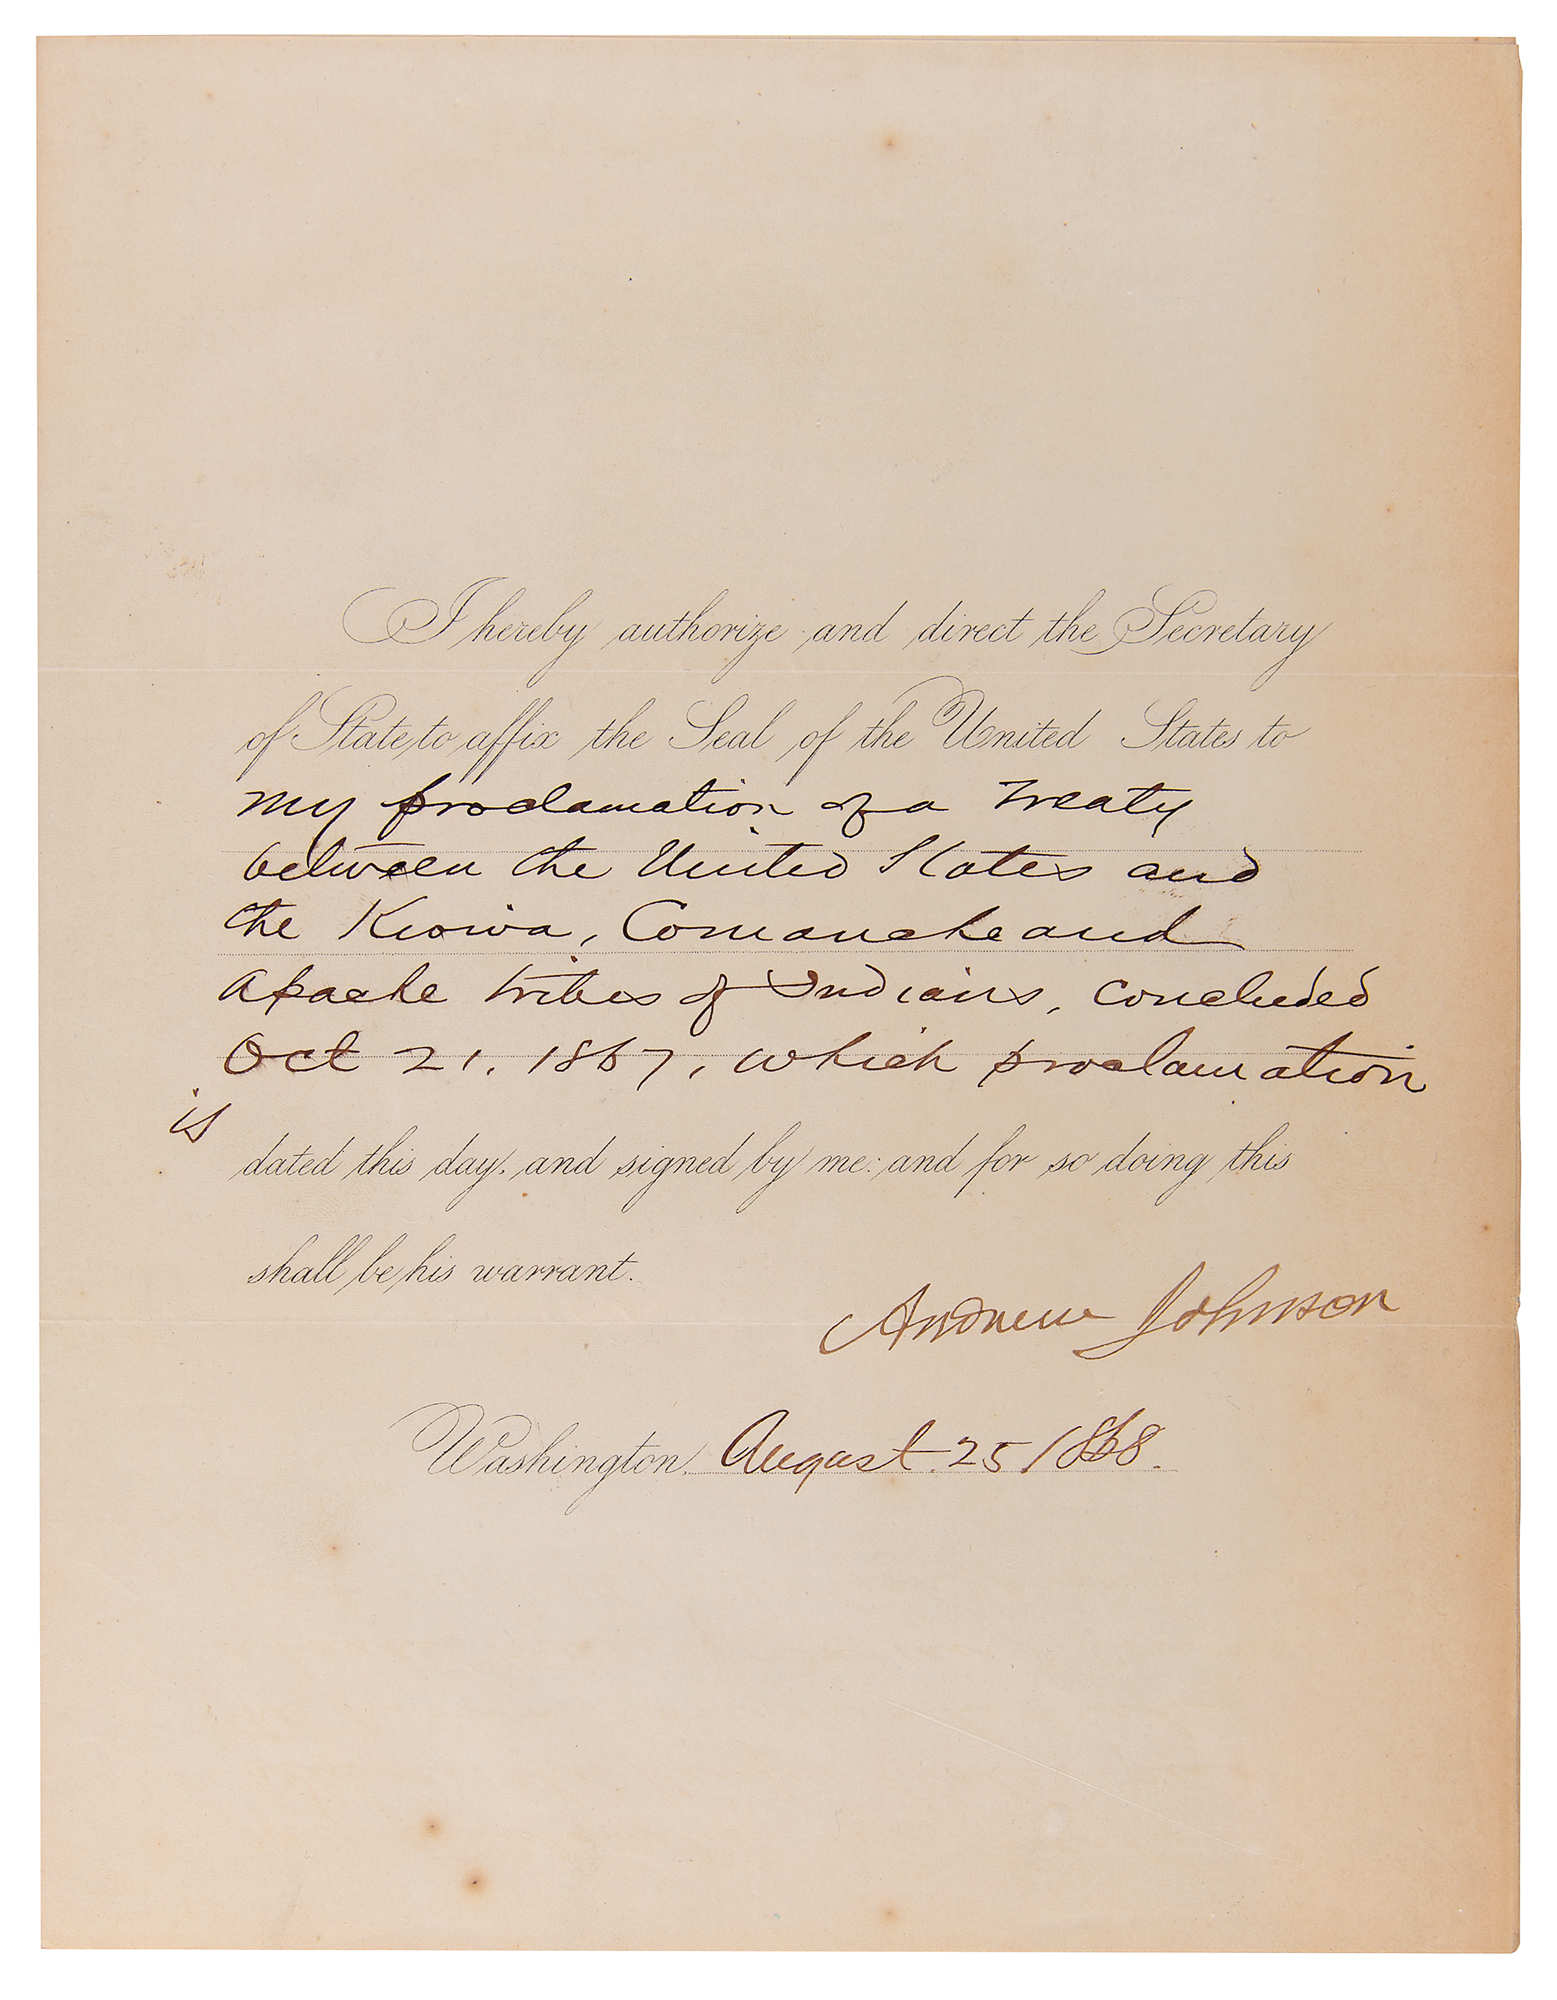 I hereby authorize and direct the Secretary
of State to affix the Seal of the United States to
my proclamation of a Treaty
between the United States and
the Kiowa, Comanche and
Apache tribes of Indians, concluded
Oct 21. 1867, which proclamation
is
dated this day, and signed by me: and for so doing this
shall be his warrant.
Andrew Johnson
Washington, August 25, 1868.